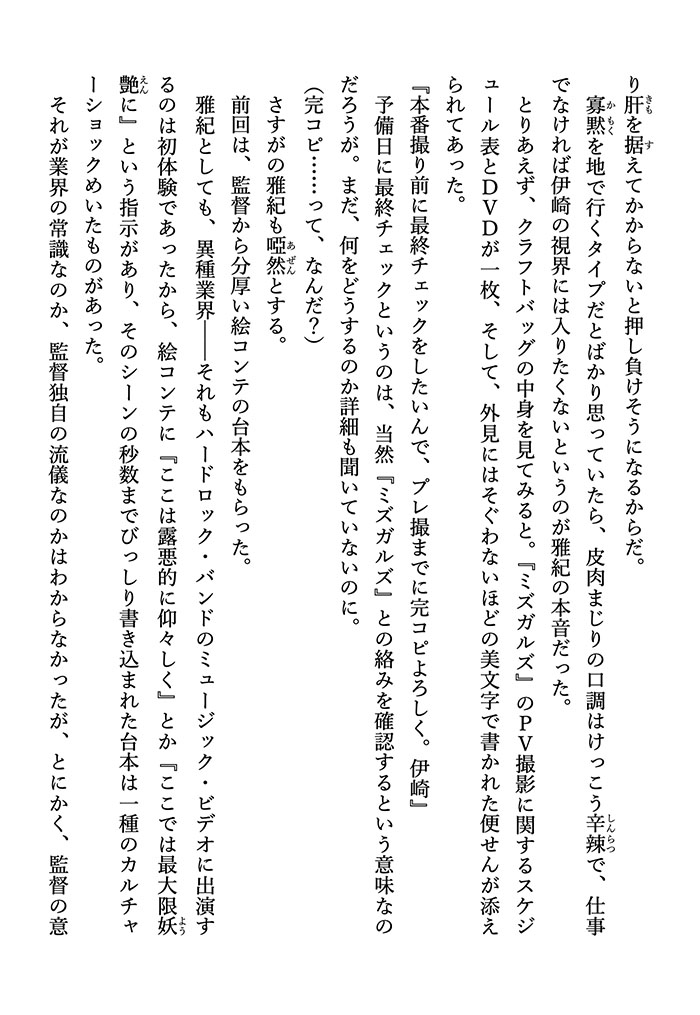 り肝を据えてかからないと押し負けそうになるからだ。
寡黙を地で行くタイプだとばかり思っていたら、皮肉まじりの口調はけっこう辛辣で、仕事
でなければ伊崎の視界には入りたくないというのが雅紀の本音だった。
とりあえず、クラフトバッグの中身を見てみると。『ミズガルズ』のPV撮影に関するスケジ
ュール表とDVDが一枚、そして、外見にはそぐわないほどの美文字で書かれた便せんが添え
られてあった。
『本番撮り前に最終チェックをしたいんで、プレ撮までに完コピよろしく。伊崎』
予備日に最終チェックというのは、当然『ミズガルズ』との絡みを確認するという意味なの
だろうが。まだ、何をどうするのか詳細も聞いていないのに。
（完コピ……って、なんだ？）
さすがの雅紀も啞然とする。
前回は、監督から分厚い絵コンテの台本をもらった。
雅紀としても、異種業界――それもハードロック・バンドのミュージック・ビデオに出演す
るのは初体験であったから、絵コンテに『ここは露悪的に仰々しく』とか『ここでは最大限妖
艶に』という指示があり、そのシーンの秒数までびっしり書き込まれた台本は一種のカルチャ
ーショックめいたものがあった。
それが業界の常識なのか、監督独自の流儀なのかはわからなかったが、とにかく、監督の意